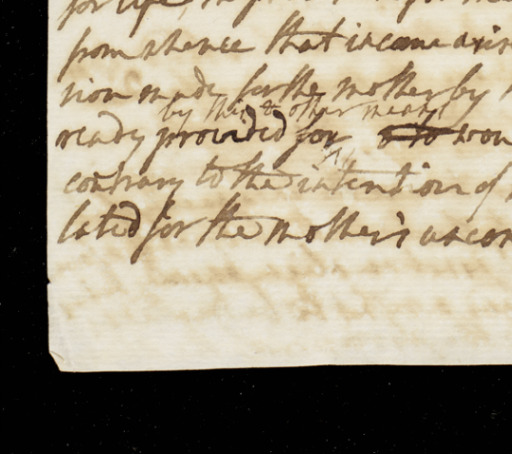 for life,
from whence that income aris
sion made for the mother by
by this & other means
ready provided for won
contrary to the intention of
lated for the mother's uncon